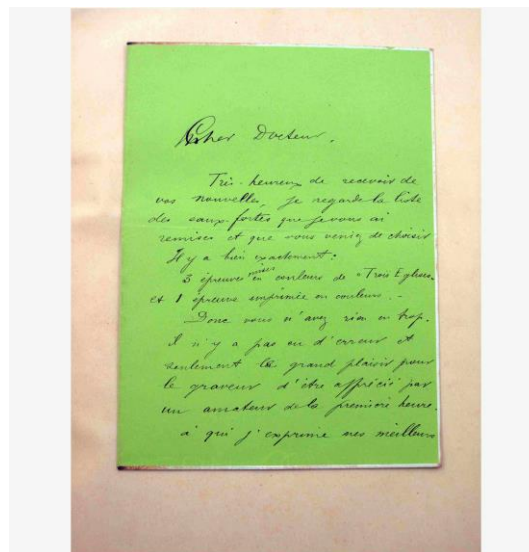 Cher Docteur,
Très heureux de recevoir de
vos nouvelles, je regarde la liste
des eaux-fortes que je vous ai
remises et que vous veniez de choisir
Il y a bien exactement :
3 épreuves mises en couleurs de "Trois Eglises"
et 1 épreuve imprimée en couleurs . -
Donc vous n'avez rien en trop.
Il n'y a pas eu d'erreur et
seulement le grand plaisir pour
le graveur d'être apprécié par
un amateur de la première heure.
à qui j'exprime mes meilleurs